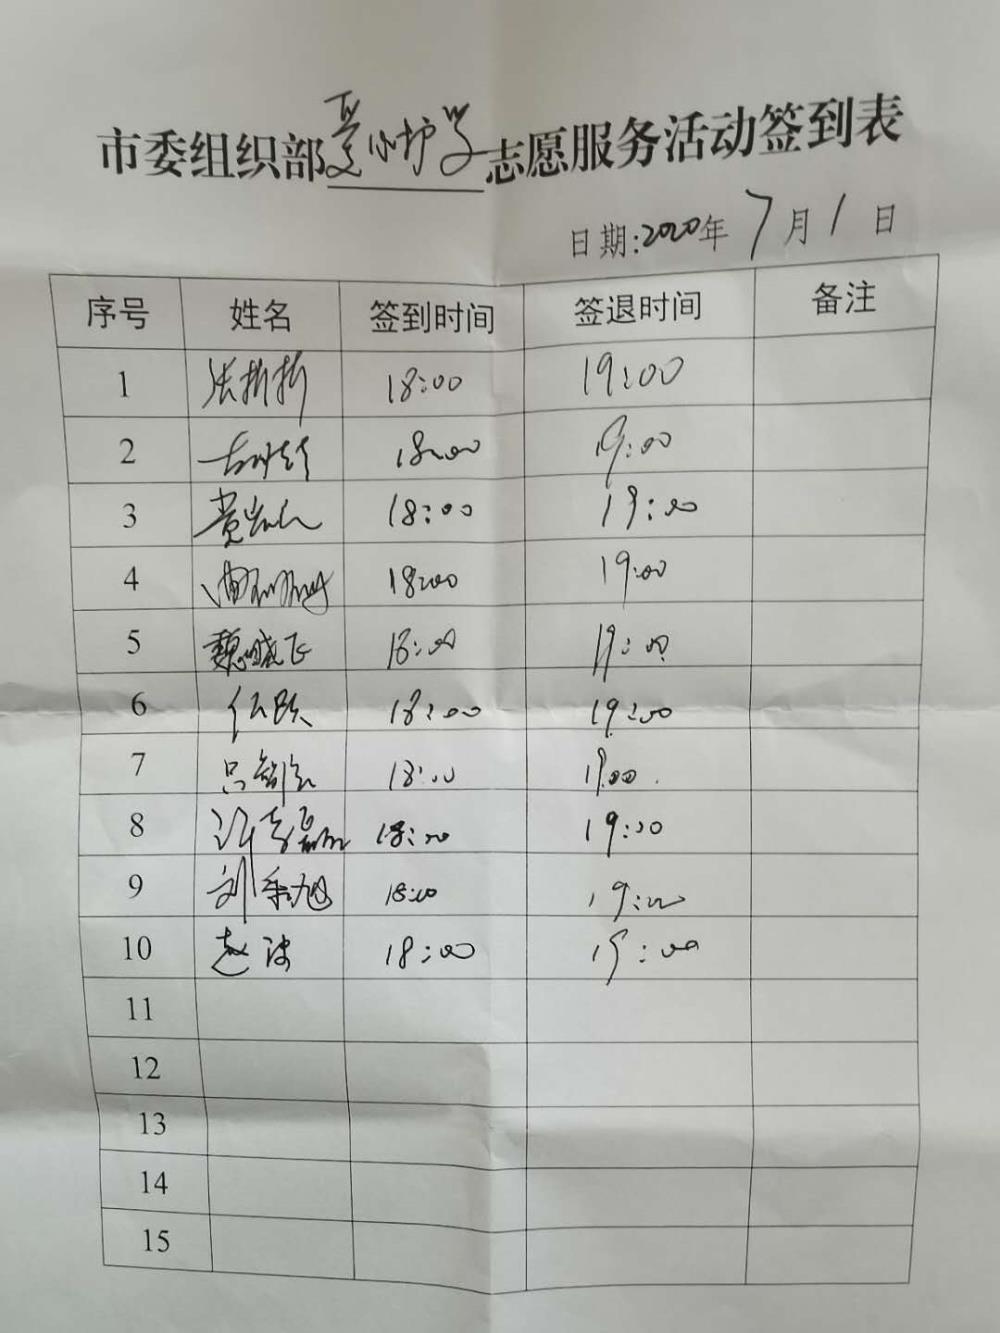 市委组织部 小护学 志愿服务活动签到表
日期:2020年 7月1日
序号 姓名 签到时间 签退时间 备注
1 18:00 19:00
2 18:00 19:00
3 18:00 19:00
4 18:00 19:00
5 魏晓飞 18:00 19:00
6 任跃 18:00 19:00
7 18:00 19:00
8 18:00 19:00
9 18:00 19:00
10 赵波 18:00 19:00
11
12
13
14
15